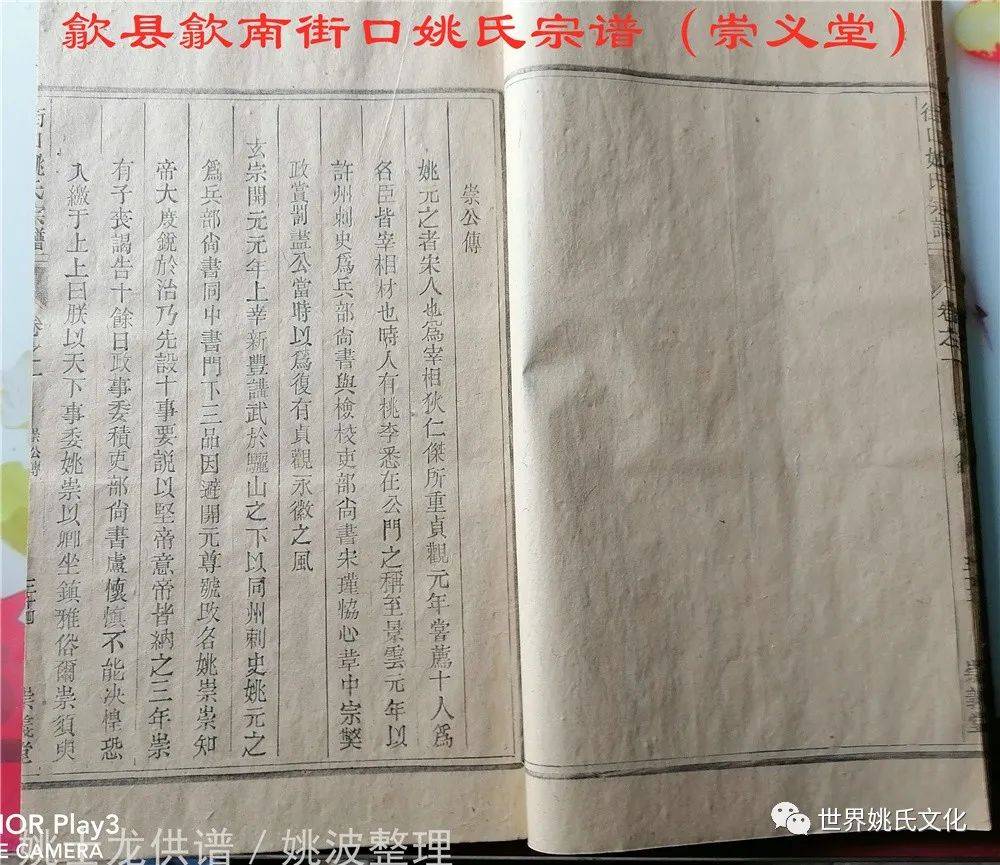 歙县歙南街口姚氏宗谱（崇义堂）
崇公傳
姚元之者宋人也爲宰相狄仁傑所重貞觀元年嘗薦十人爲
名臣皆宰相材也時人有桃李悉在公門之稱至景雲元年以
許州刺史爲兵部尙書與檢校吏部尙書宋璟恊心革中宗獘
政賞罰盡公當時以爲復有貞觀永徽之風
玄宗開元元年上幸新豐講武於驪山之下以同州刺史姚元之
爲兵部尙書同中書門下三品因避開元尊號改名姚崇崇知
帝大度銳於治乃先設十事要說以堅帝意帝皆納之三年崇
有子丧謁告十餘日政事委積吏部尙書盧懷愼不能决惶恐
入繳于上上曰朕以天下事委姚崇以卿坐鎮雅俗爾崇須臾
街口姚氏宗譜
卷之一
崇公傳
三十四
崇義堂
街口姚氏宗譜
卷之一
崇義堂
NOR Play3
CAMERA
龙供谱 / 姚波整理
世界姚氏文化